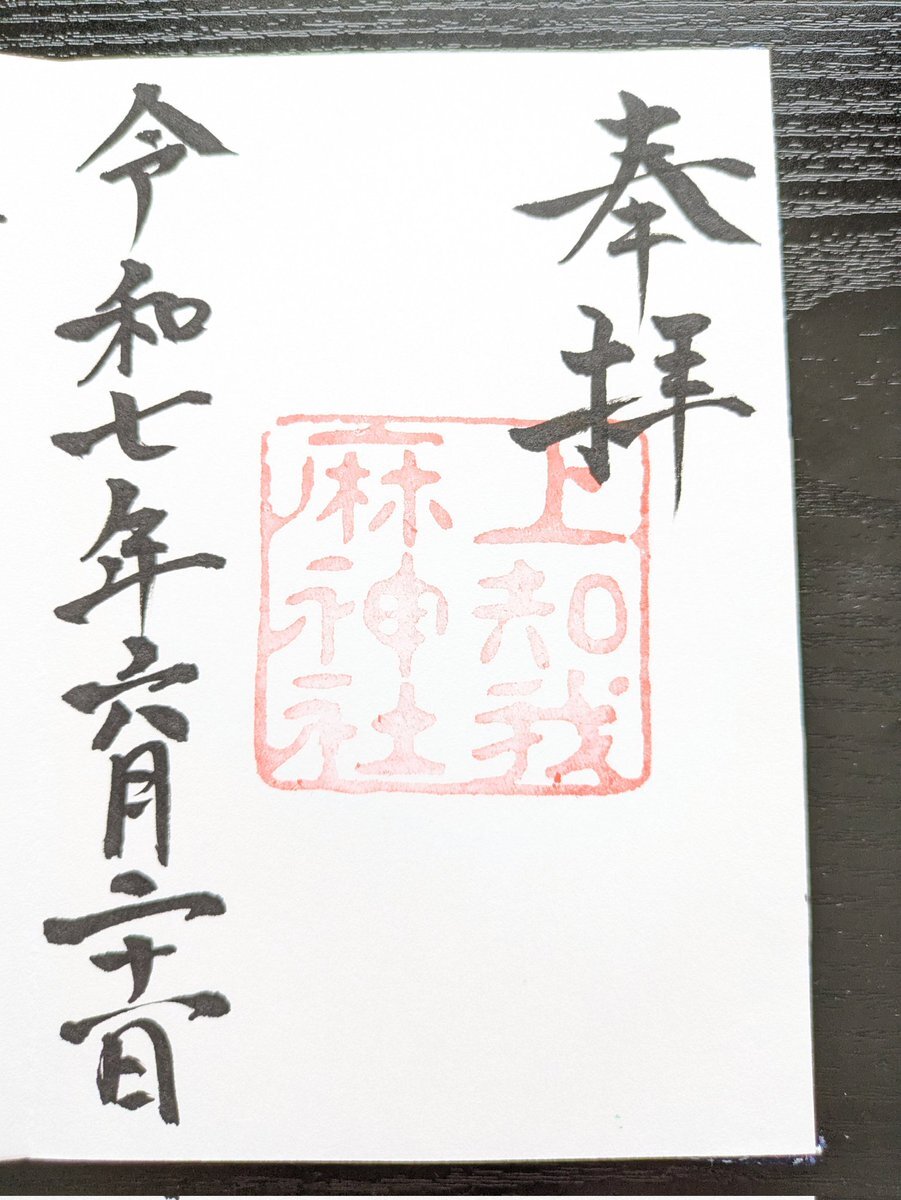 奉拝
上知我
麻神社
令和七年六月二十一日